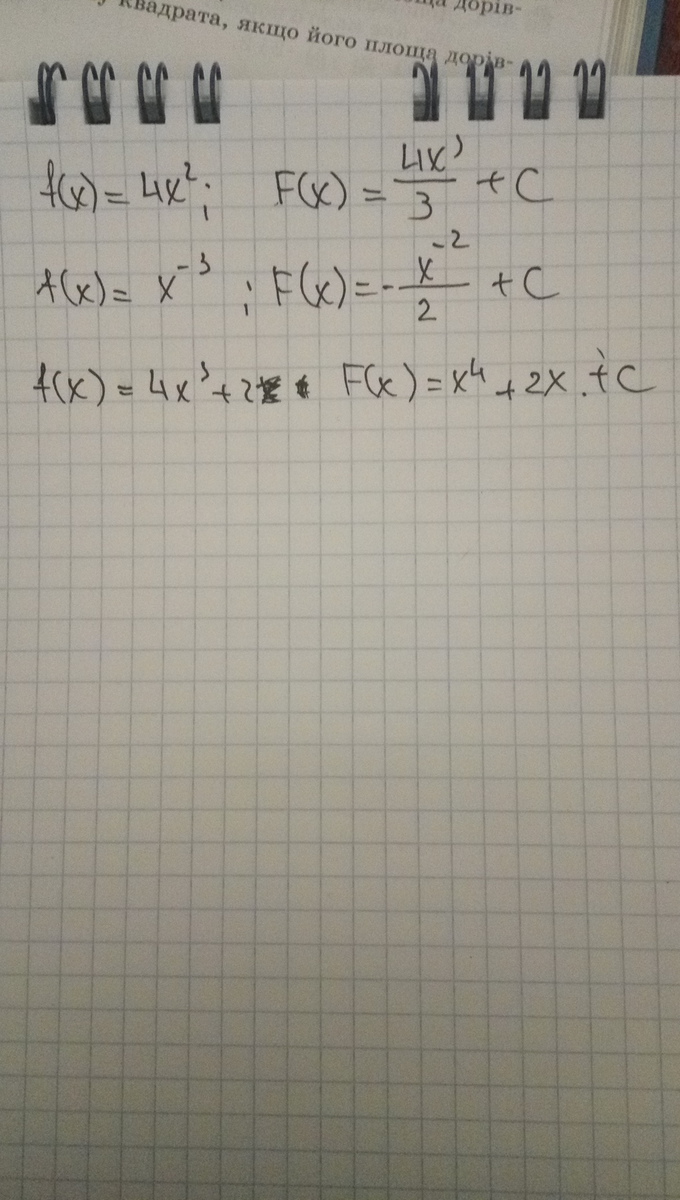 ща дорів-
квадрата, якщо його площа дорів-
f(x) = 4x²; F(x) = 4x³/3 + C
f(x) = x⁻³ ; F(x) = - x⁻²/2 + C
f(x) = 4x³ + 2 F(x) = x⁴ + 2x + C